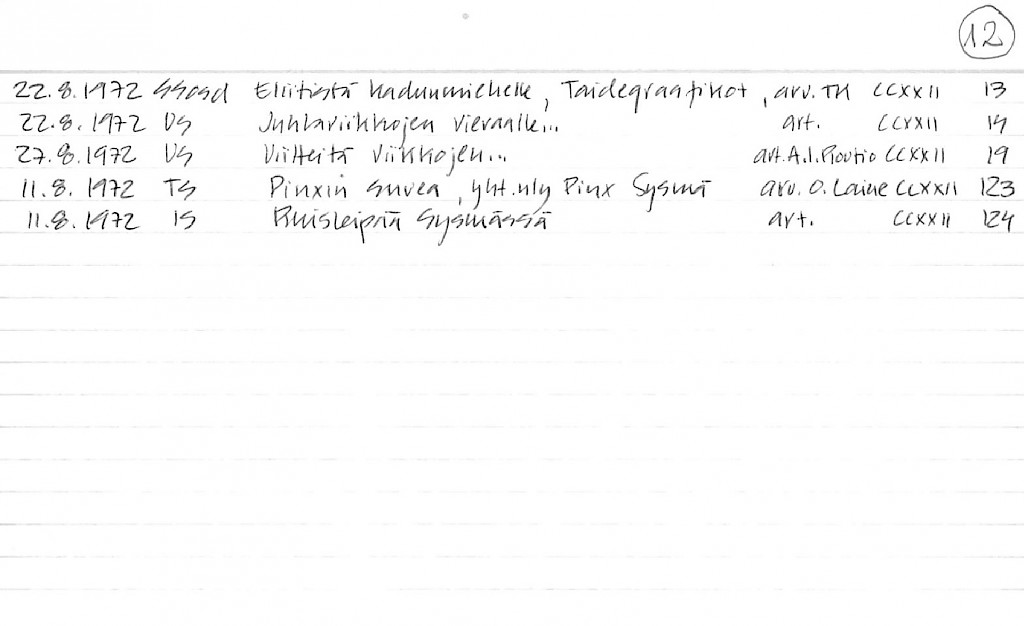 12
22.8.1972 SSosd Eliitistä kadunmiehelle, Taidegraafikot, arv. TK CCXXII 13
22.8.1972 US Juhlaviikkojen vieraalle... art. CCXXII 14
27.8.1972 US Viitteitä viikkojen... art. A.I. Routio CCXXII 19
11.8.1972 TS Pinxin suvea, yht.nly Pinx Sysmä arv. O. Laine CCXXII 123
11.8.1972 IS Ruisleipää Sysmässä art. CCXXII 124